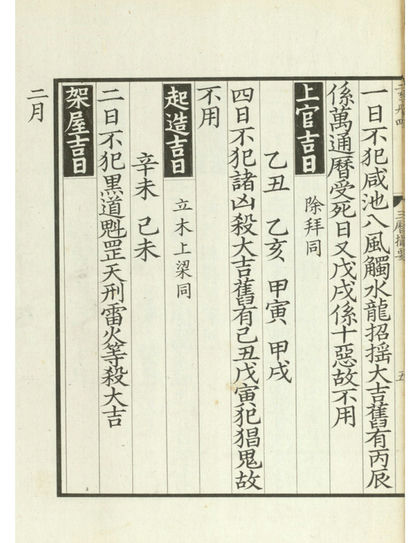 一日不犯咸池八風觸水龍招摇大吉舊有丙辰
係萬通曆受死日又戊戌係十惡故不用
上官吉日 除拜同
乙丑 乙亥 甲寅 甲戌
四日不犯諸凶殺大吉舊有己丑戊寅犯猖鬼故
不用
起造吉日 立木上梁同
辛未 己未
二日不犯黒道魁罡天刑雷火等殺大吉
架屋吉日
二月